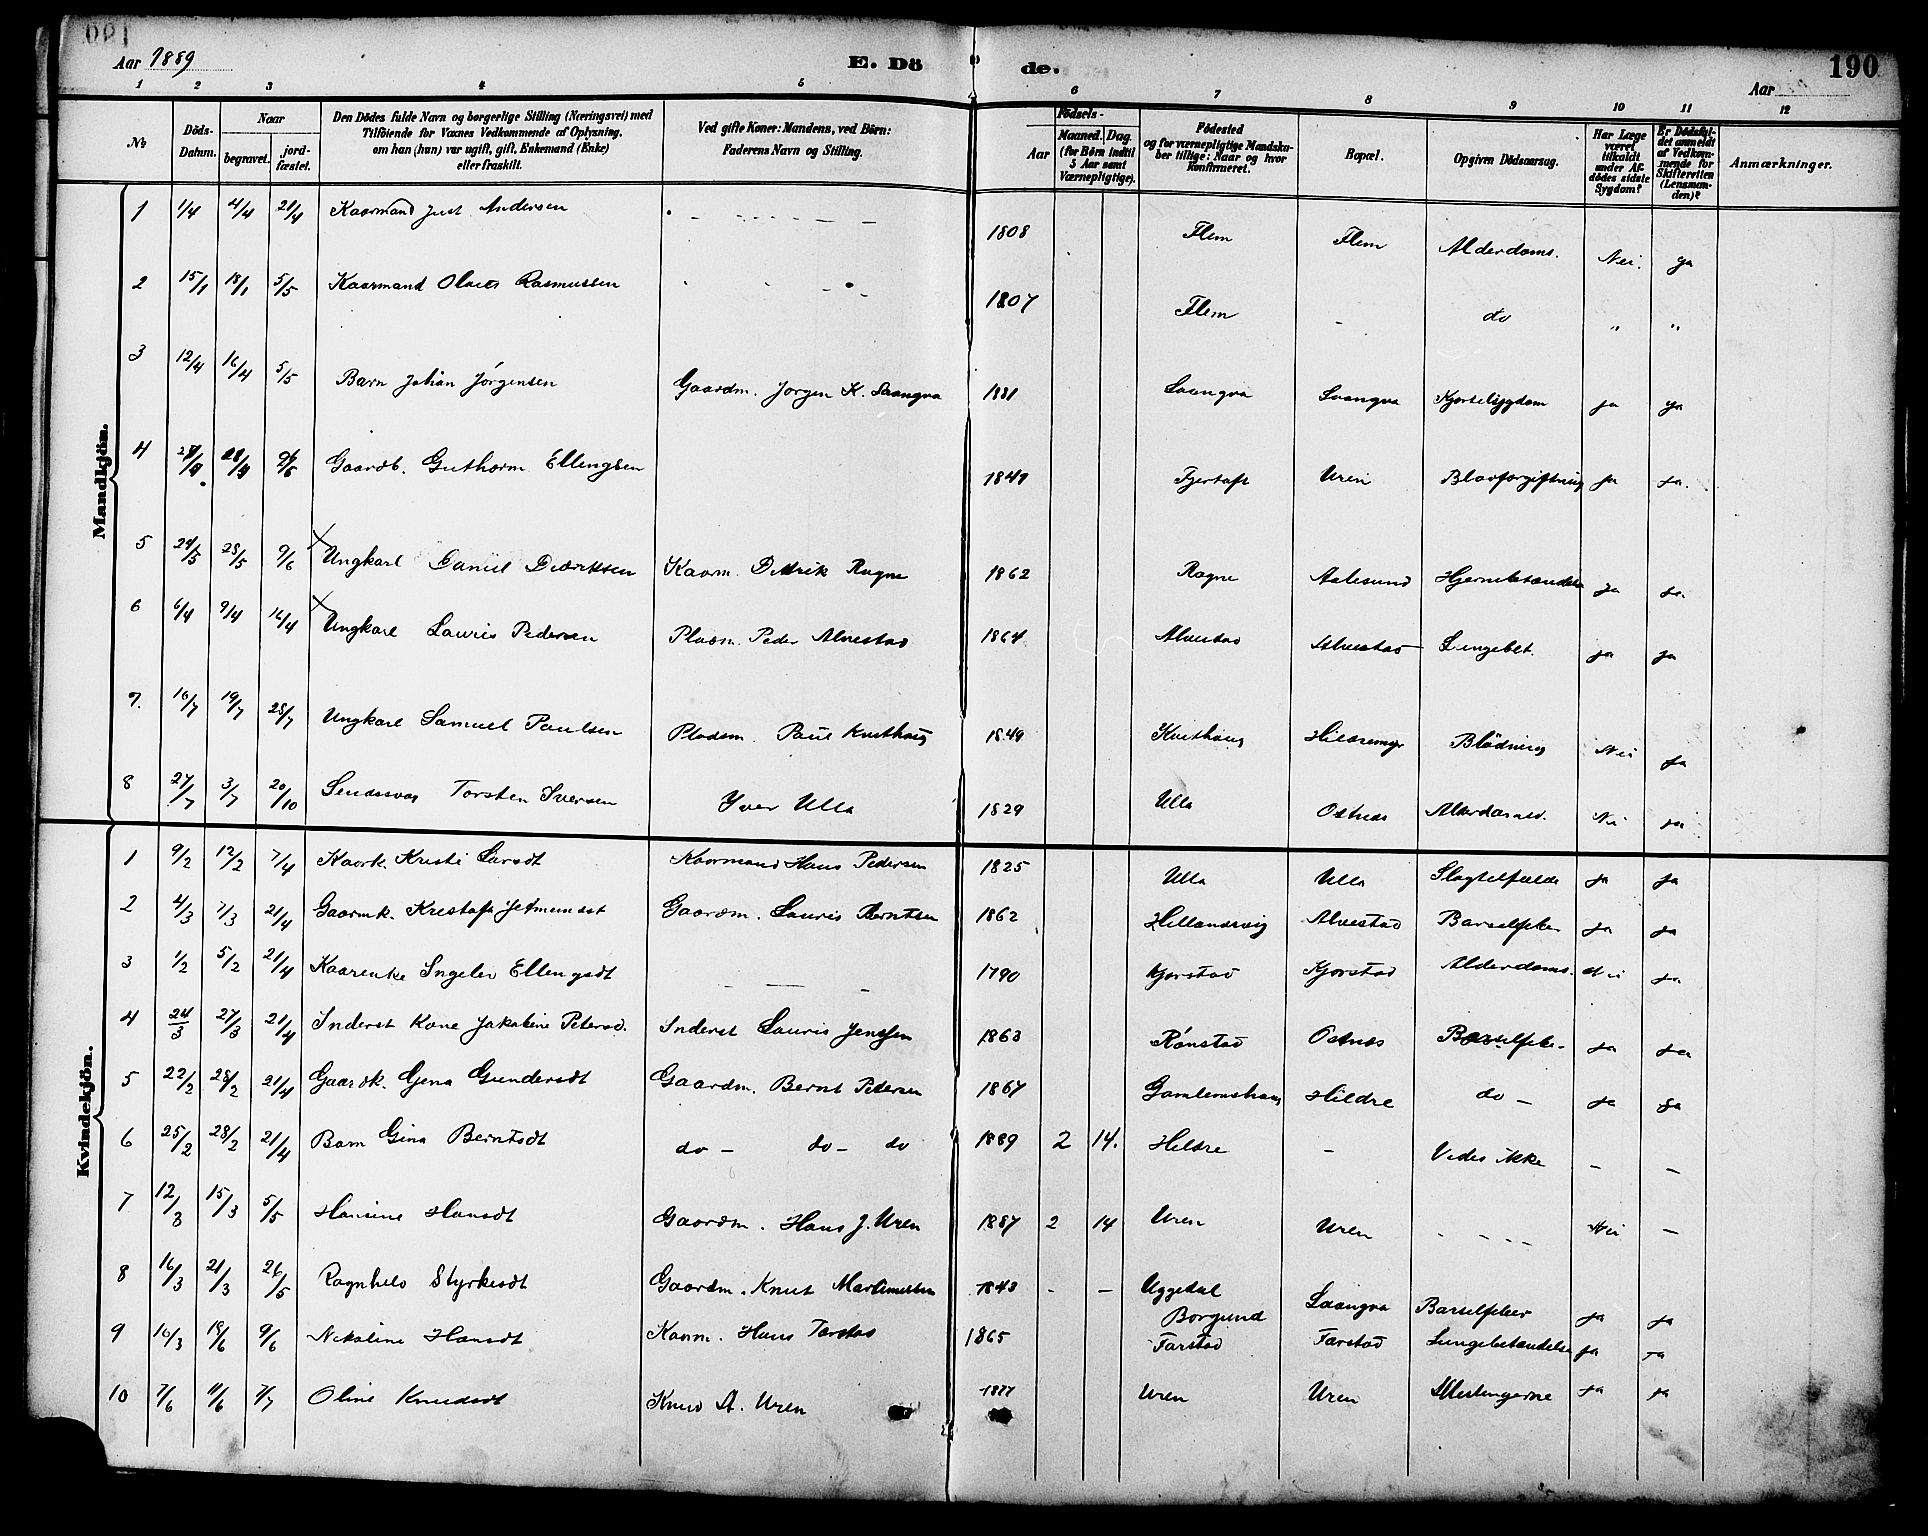 190
Aar 1889
E. Dö de.
Aar
1 2 3 4 5 6 7 8 9 10 11 12
№
Döds-Datum.
Naar
begravet.
jord-fæstet.
Den Dödes fulde Navn og borgerlige Stilling (Næringsvei) med
Tilföiende for Voxnes Vedkommende af Oplysning,
om han (hun) var ugift, gift, Enkemand (Enke)
eller fraskilt.
Ved gifte Koner: Mandens, ved Börn:
Faderens Navn og Stilling.
Födsels-
Aar
Maaned. Dag.
(for Börn indtil
5 Aar samt
Værnepligtige).
Födested
og for værnepligtige Mandska-
ber tillige: Naar og hvor
Konfirmeret.
Bopæl.
Opgiven Dödsaarsag.
Har Læge
været
tilkaldt
under Af-
dödes sidste
Sygdom?
Er Dödsfal-
det anmeldt
af Vedkom-
mende for
Skifteretten
(Lensman-
den)?
Anmærkninger.
Mandkjön.
1 1/4 4/4 21/4 Kaarmand Just Andersen - - - - - 1808 Flem Flem Alderdoms. Nei. ja
2 15/1 18/1 5/5 Kaarmand Olaus Rasmussen - - - 1807 Flem - do " "
3 12/4 16/4 5/5 Barn Johan Jörgensen Gaardm. Jörgen K. Saangva 1881 Saangva Saangva ja ja
4 9/6 Gaardb. Guthorm Ellengsen 1849 Fjertoft Uren Blodforgiftning ja ja.
5 24/5 28/5 9/6 Ungkarl Daniel Dedriksen Kaarm. Dedrik Rogne 1862 Rogne Aalesund Hjernebetændelse ja ja
6 6/4 9/4 14/4 Ungkarl Lauris Pedersen Pladsm. Peder Alvestad 1864 Alvestad Alvestad Lungebet. ja ja
7. 16/7 19/7 28/7 Ungkarl Samuel Paulsen Pladsm. Paul Kvithaug 1849 Kvithaug Hildremyr Blödning Nei ja
8 27/7 3/7 20/10 Torsten Iversen Yver Ulla 1829 Ulla Ostnes Alderdomsv. Nei ja
Kvindekjön.
1 9/2 12/2 7/4 Kaark. Kristi Larsdt Kaarmand Hans Pedersen 1825 Ulla Ulla Slagtilfælde ja ja
2 4/3 7/3 21/4 Gaardmk. Jetmundsdt Gaardm. Lauris Berntsen 1862 Hellandsvig Alvestad Barselfeber ja ja
3 1/2 5/2 21/4 Kaarenke Ingelev Ellengsdt - - - 1790 Kjorstad Kjorstad Alderdoms. Nei ja
4 24/3 27/3 21/4 Inderst Kone Jakobine Petersd. Inderst Lauris Jenssen 1863 Rönstad Ostnes Barselfeb. ja ja
5 22/2 28/2 21/4 Gaardk. Gjena Gundersdt Gaardm. Bernt Petersen 1867 Gamlemshaug Hildre do - ja ja
6 25/2 28/2 21/4 Barn Gina Berntsdt do - do - do 1889 2 14. Hildre - Vides ikke - -
7 12/3 15/3 5/5 Hansine Hansdt Gaardm. Hans J. Uren 1887 2 14 Uren Uren - - - - Nei -
8 16/3 21/3 26/5 Ragnhild Styrkesdt Gaardm. Knut Martinussen 1843 - - Uggedal Borgund Saangva Barselfeber ja ja
9 10/3 19/6 9/6 Nikoline Hansdt Kaarm. Hans Farstad 1865 Farstad Farstad Lungebetændelse ja ja
10 7/6 11/6 7/7 Oline Knudsdt Knud A. Uren 1877 Uren Uren Meslingerne ja ja